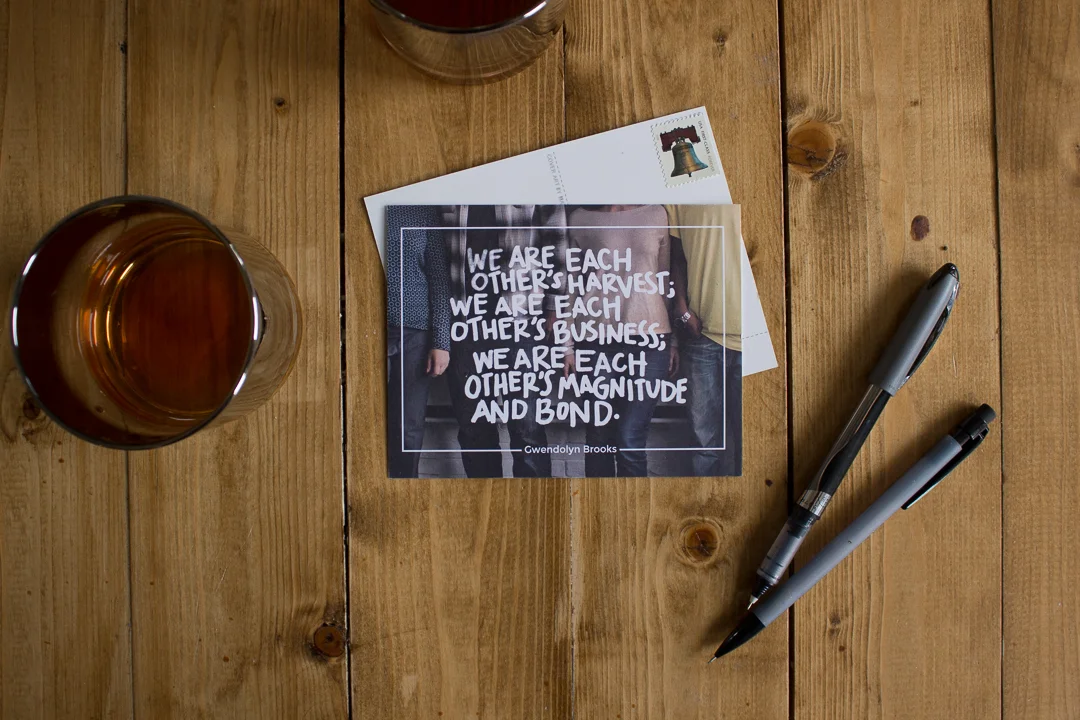 WE ARE EACH
OTHER'S HARVEST;
WE ARE EACH
OTHER'S BUSINESS;
WE ARE EACH
OTHER'S MAGNITUDE
AND BOND.
Gwendolyn Brooks